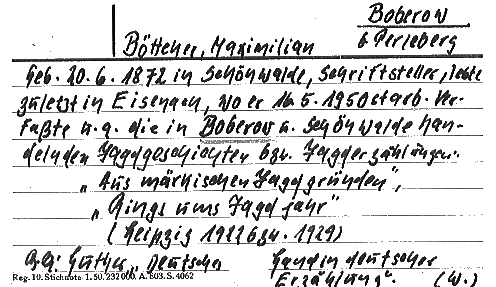 Boberow
b Perleberg
Böttcher, Maximilian
Geb. 20. 6. 1872 in Schönwalde, Schriftsteller, lebte
zuletzt in Eisenach, wo er 16. 5. 1950 starb. Ver-
faßte u. a. die in Boberow u. Schönwalde han-
delnden Jagdgeschichten bzw. Jagderzählungen:
„Aus märkischen Jagdgründen",
„Rings ums Jagdjahr"
(Leipzig 1922 bzw. 1929)
Günther, „Deutsches
Land in deutscher
Erzählung". (W.)
Reg. 10. Stichnote 1. 50. 232 000. A. 803. S. 4062